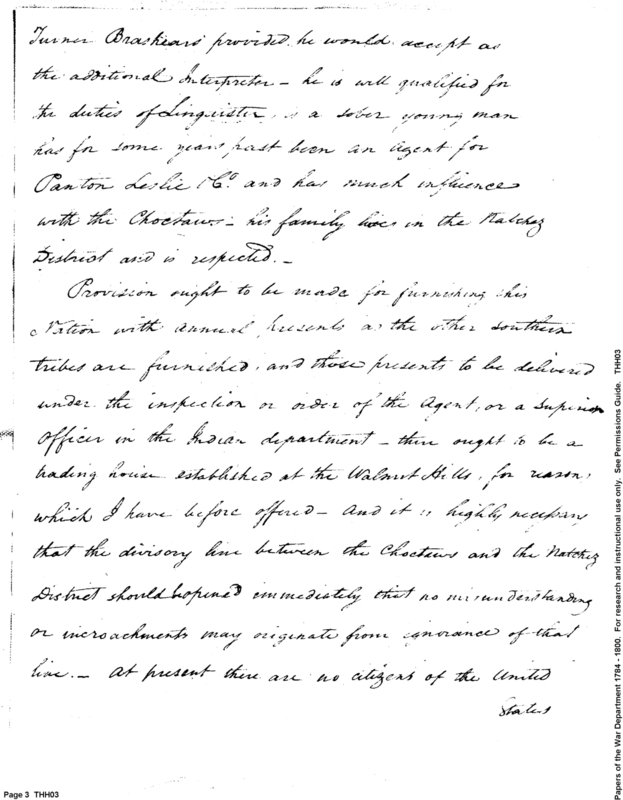 Turner Brashears provided he would accept as
the additional Interpreter - he is well qualified for
the duties of Linguister, is a sober young man
has for some years past been an agent for
Panton Leslie & Co. and has much influence
with the Choctaws - his family lives in the Natchez
District and is respected. -
Provision ought to be made for furnishing this
Nation with annual presents as the other southern
tribes are furnished, and those presents to be delivered
under the inspection or order of the Agent, or a Superior
Officer in the Indian department - there ought to be a
trading house established at the Walnut Hills, for reasons,
which I have before offered - And it is highly necessary
that the divisory line between the Choctaws and the Natchez
District should be opened immediately that no misunderstanding
or incroachments may originate from ignorance of that
line. - At present there are no citizens of the United
States
Page 3 THH03
Papers of the War Department 1784 - 1800. For research and instructional use only. See Permissions Guide. THH03